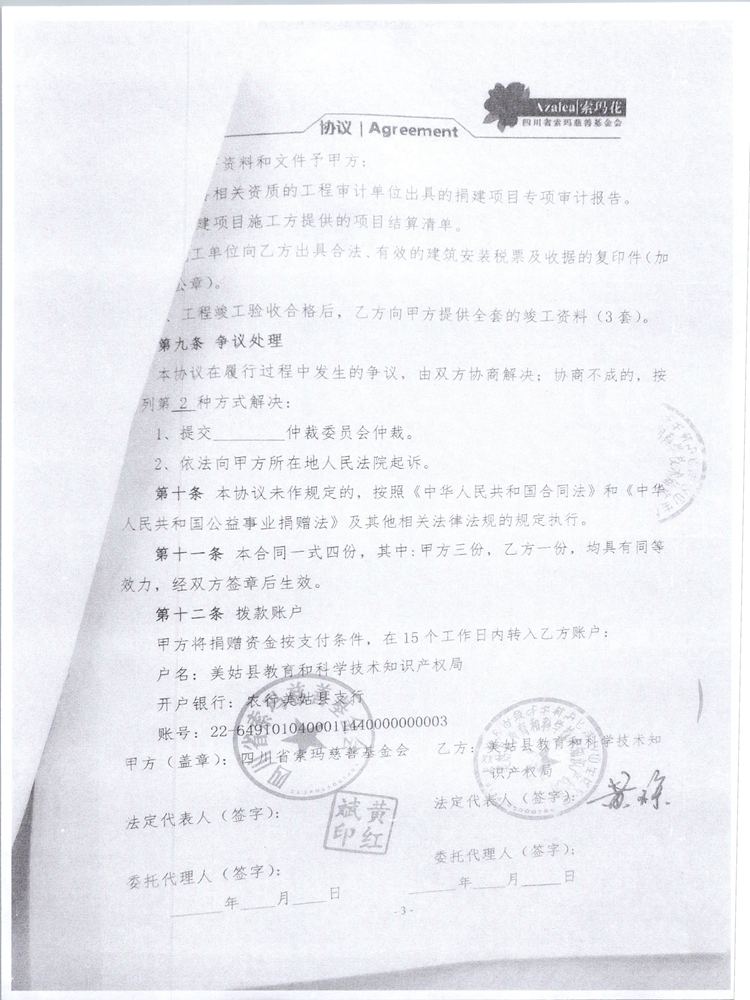 Azalea 索玛花
四川省索玛慈善基金会
协议 | Agreement
资料和文件予甲方；
相关资质的工程审计单位出具的捐建项目专项审计报告。
建项目施工方提供的项目结算清单。
工单位向乙方出具合法、有效的建筑安装税票及收据的复印件（加
公章）。
、工程竣工验收合格后，乙方向甲方提供全套的竣工资料（3套）。
第九条 争议处理
本协议在履行过程中发生的争议，由双方协商解决；协商不成的，按
列第 2 种方式解决：
1、提交________仲裁委员会仲裁。
2、依法向甲方所在地人民法院起诉。
第十条 本协议未作规定的，按照《中华人民共和国合同法》和《中华
人民共和国公益事业捐赠法》及其他相关法律法规的规定执行。
第十一条 本合同一式四份，其中：甲方三份，乙方一份，均具有同等
效力，经双方签章后生效。
第十二条 拨款账户
甲方将捐赠资金按支付条件，在15个工作日内转入乙方账户：
户名：美姑县教育和科学技术知识产权局
开户银行：农行美姑县支行
账号：22-6491010400011440000000003
甲方（盖章）：四川省索玛慈善基金会
乙方：美姑县教育和科学技术知
识产权局
法定代表人（签字）：
法定代表人（签字）：
黄红
斌印
委托代理人（签字）：
委托代理人（签字）：
_____年____月____日
_____年____月____日
- 3 -